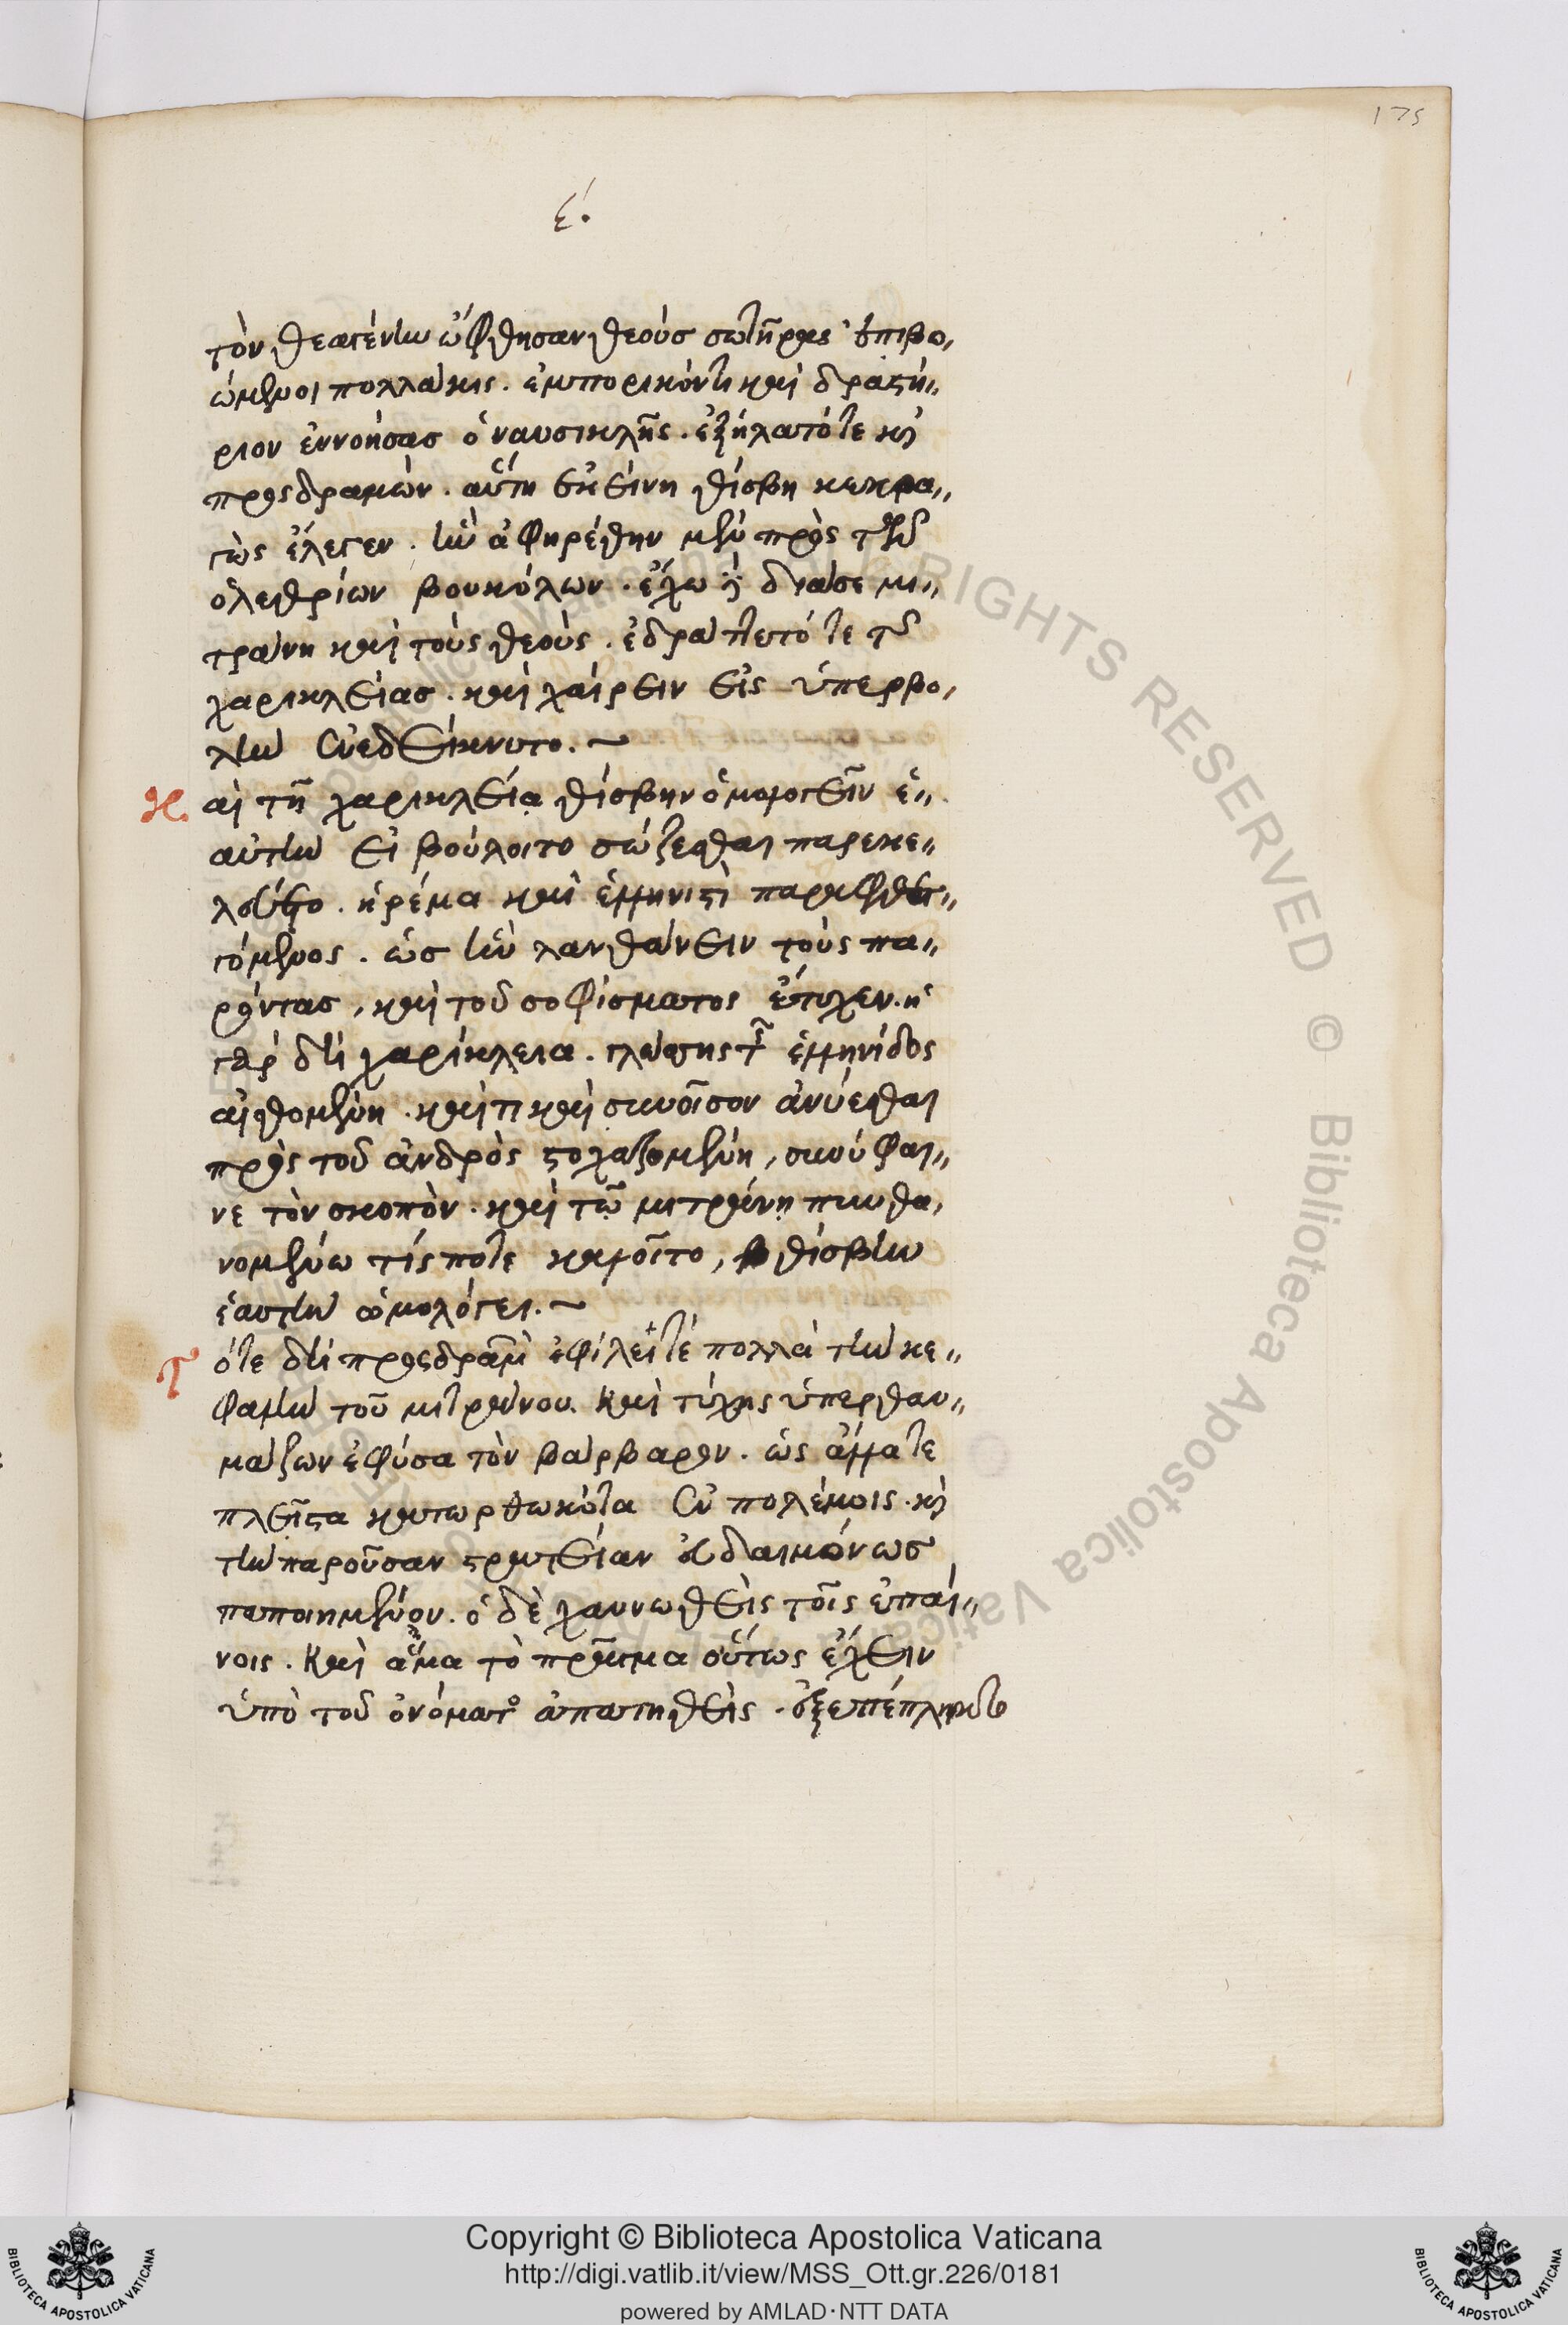 175
ε΄.
τὸν θεαγένην ὤφθησαν θεοὺσ σωτῆρας ἐπιβο,
ώμενοι πολλάκις. ἐμπορικόν τι καὶ δραστή,,
ριον ἐννοήσασ ὁ ναυσικλῆς. ἐξήλατό τε κὶ
προςδραμών. αὕτη ἐκείνη θίσβη κεκρα,,
γὼς ἔλεγεν. ἣν ἀφηρέθην μὲν πρὸς τῶν
ὀλεθρίων βουκόλων. ἔχω δὲ διά σε μι,,
τράνη καὶ τοὺς θεούς. ἐδράττετό τε τῆς
χαρικλείασ. καὶ χαίρειν εἰς ὑπερβο,
λὴν ἐνεδείκνυτο. ~
Κ. αὶ τῇ χαρικλείᾳ θίσβην ὁμολογεῖν ἑ,,
αὐτὴν εἰ βούλοιτο σώζεσθαι παρεκε,,
λεύετο. ἠρέμα καὶ ἑλληνιστὶ παραφθεγ,,
γόμενος. ὡσ ἂν λανθάνειν τοὺς πα,,
ρόντασ, καὶ τοῦ σοφίσματος ἔτυχεν. ἡ
γὰρ δὴ χαρίκλεια. γλώσσης τε ἑλληνίδος
αἰσθομένη. καί τι καὶ συνοῖσον ἀνύεσθαι
πρὸς τοῦ ἀνδρὸς στοχαζομένη, συνύφαι,,
νε τὸν σκοπὸν. καὶ τῷ μιτράνῃ πυνθα,
νομένω τίς ποτε καλοῖτο, θίσβην
ἑαυτὴν ὡμολόγει. ~
Τ ότε δὴ προςδραμὼν ἐφίλει τέ πολλὰ τὴν κε,,
φαλὴν τοῦ μιτράνου. Καὶ τύχης ὑπερθαυ,,
μάζων ἐφύσα τὸν βάρβαρον. ὡς ἄλλα τε
πλεῖστα κατωρθωκότα ἐν πολέμοις. κὶ
τὴν παροῦσαν στρατείαν εὐδαιμόνωσ
πεποιημένον. ὁ δὲ χαυνωθεὶς τοῖς ἐπαί,,
νοις. Καὶ ἅμα τὸ πρᾶγμα οὕτως ἔχειν
ὑπὸ τοῦ ὀνόματος ἀπατηθεὶς. ἐξεπέπληκτο
Copyright © Biblioteca Apostolica Vaticana
http://digi.vatlib.it/view/MSS_Ott.gr.226/0181
powered by AMLAD·NTT DATA
BIBLIOTECA APOSTOLICA VATICANA
BIBLIOTECA APOSTOLICA VATICANA